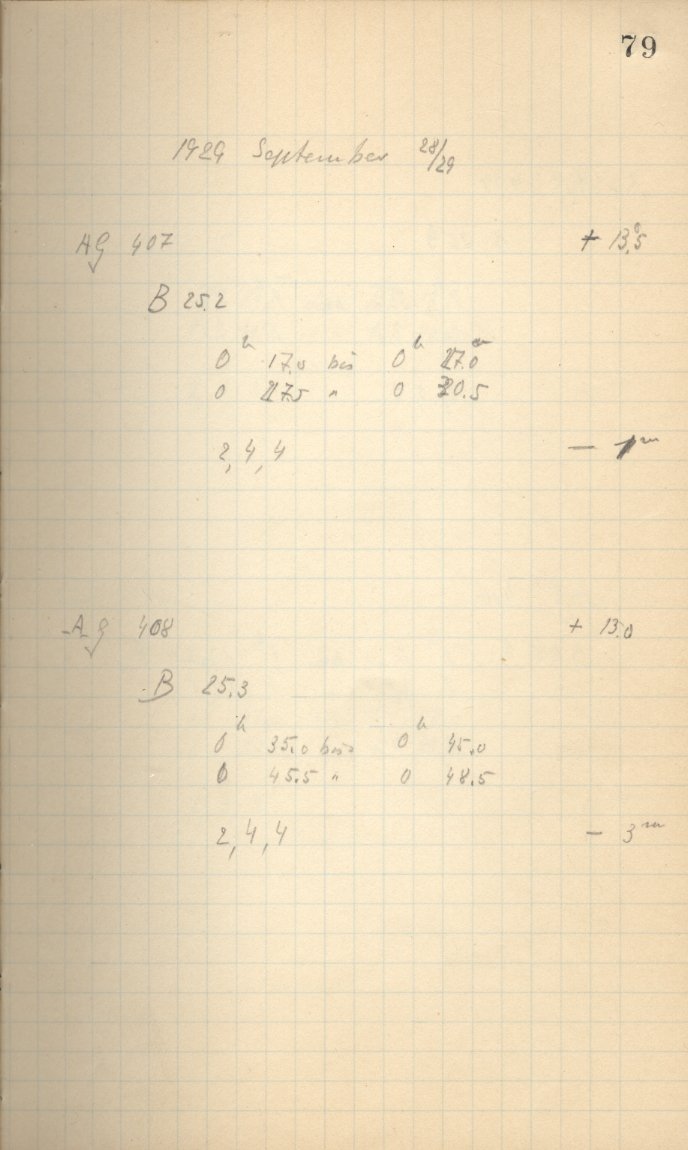 79
1929 September 28/29
AG 407 + 13°,5
B 25.2
0h 17.0 bis 0h 27.0m
0 27.5 " 0 30.5
2, 4, 4 — 1m
AG 408 + 13.0
B 25.3
0h 35.0 bis 0h 45.0
0 45.5 " 0 48.5
2, 4, 4 — 3m